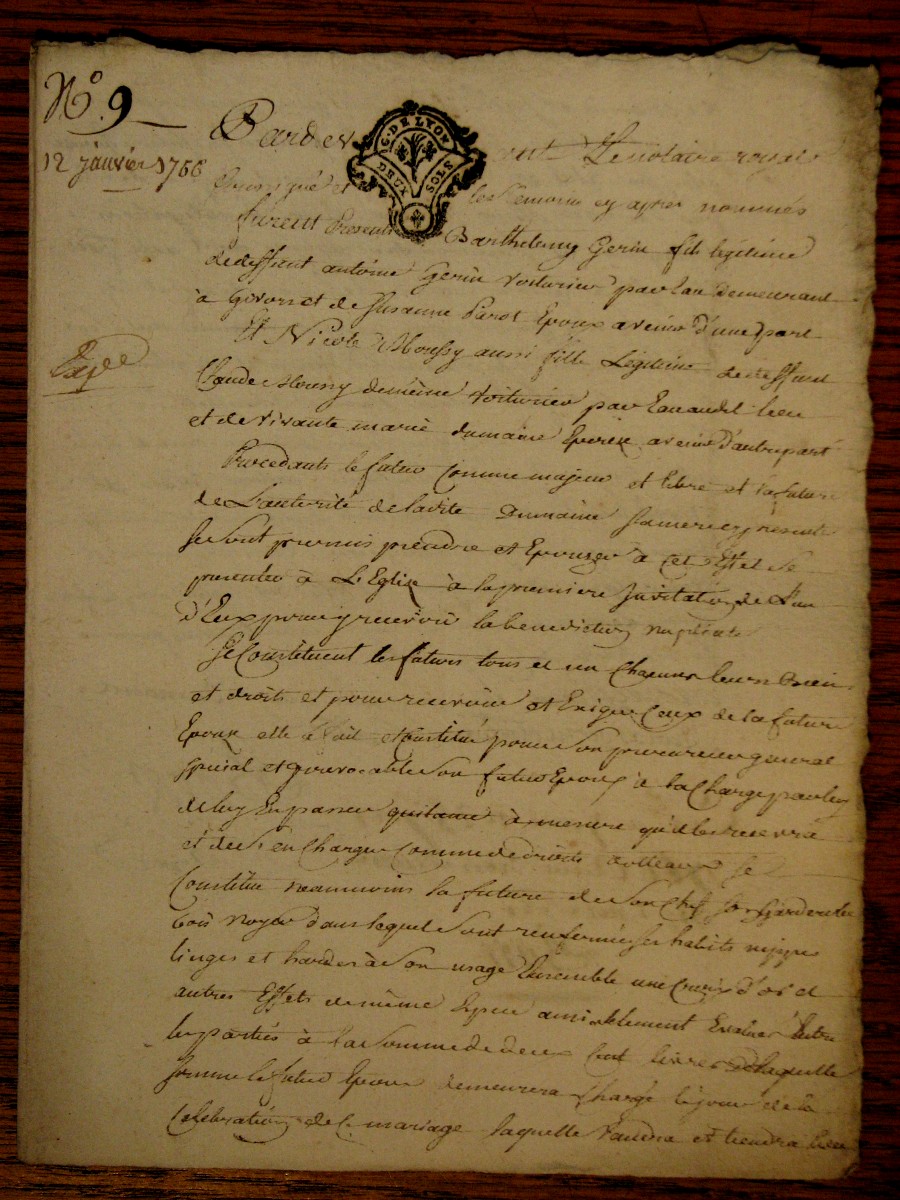 N.o 9
12 janvier 1768
Expée
G. DE LYON
DEUX SOLS
Pardevant Le notaire royal
soussigné et les temoins cy apres nommés
furent Presents Barthelemy Gerin fils legitime
de deffunt antoine Gerin voiturier par Eau demeurant
à Givors et de Susanne Parot Epoux avenir d'une part
Et Nicole Moussy aussi fille Légitime de deffunt
Claude Moussy de même voiturier par Eau audit lieu
et de vivante marie dumaine Epouse avenir d'autre part
Procedants le futur comme majeur et libre et la future
de L'autorité de ladite Dumaine sa mere cy presente
se sont promis prendre et Epouser à cet Effet se
presenter à L'Eglise à la premiere Invitation de L'un
d'Eux pour y recevoir la benediction nuptiale
Se Constituent les futurs tous et un Chacuns leurs Biens
et droits et pour recevoir et Exiger Ceux de la future
Epouse elle a fait et Constitué pour son procureur general
special et irrevocable son futur Epoux à la Charge par luy
de luy En passer quitance à mesure qu'il les recevra
et de s'en Charger Comme de droits se
Constitue neanmoins la future de son Chef garderobe
bois noyer dans lequel sont renfermés ses habits nippes
linges et hardes à son usage Ensemble une Croix d'or et
autres Effets de même Espece amiablement Evalués Entre
les parties à la somme de deux Cent livres de laquelle
somme le futur Epoux demeurera Chargé le jour de la
Celebration de Ce mariage laquelle vaudra et tiendra lieu